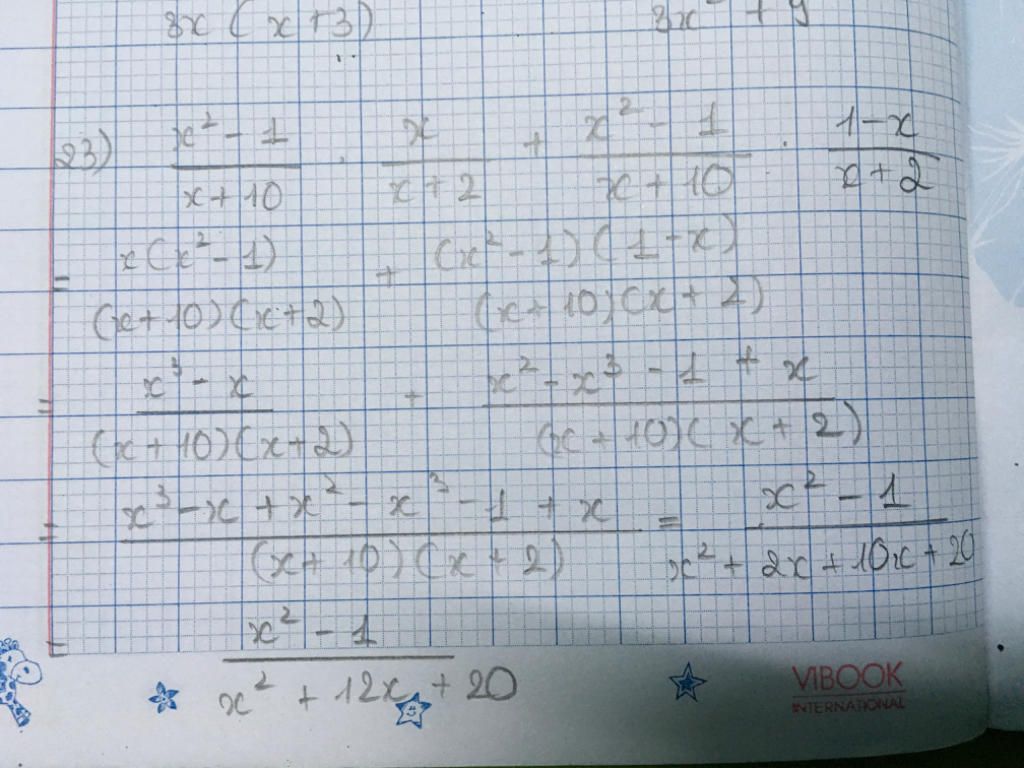 3x (x+3) 3x² + 9
23) \frac{x² - 1}{x + 10} . \frac{x}{x + 2} + \frac{x² - 1}{x + 10} . \frac{1 - x}{x + 2}
= \frac{x(x² - 1)}{(x+10)(x+2)} + \frac{(x² - 1)(1 - x)}{(x+10)(x+2)}
= \frac{x³ - x}{(x+10)(x+2)} + \frac{x² - x³ - 1 + x}{(x+10)(x+2)}
= \frac{x³ - x + x² - x³ - 1 + x}{(x+10)(x+2)} = \frac{x² - 1}{x² + 2x + 10x + 20}
= \frac{x² - 1}{x² + 12x + 20}
VIBOOK
INTERNATIONAL